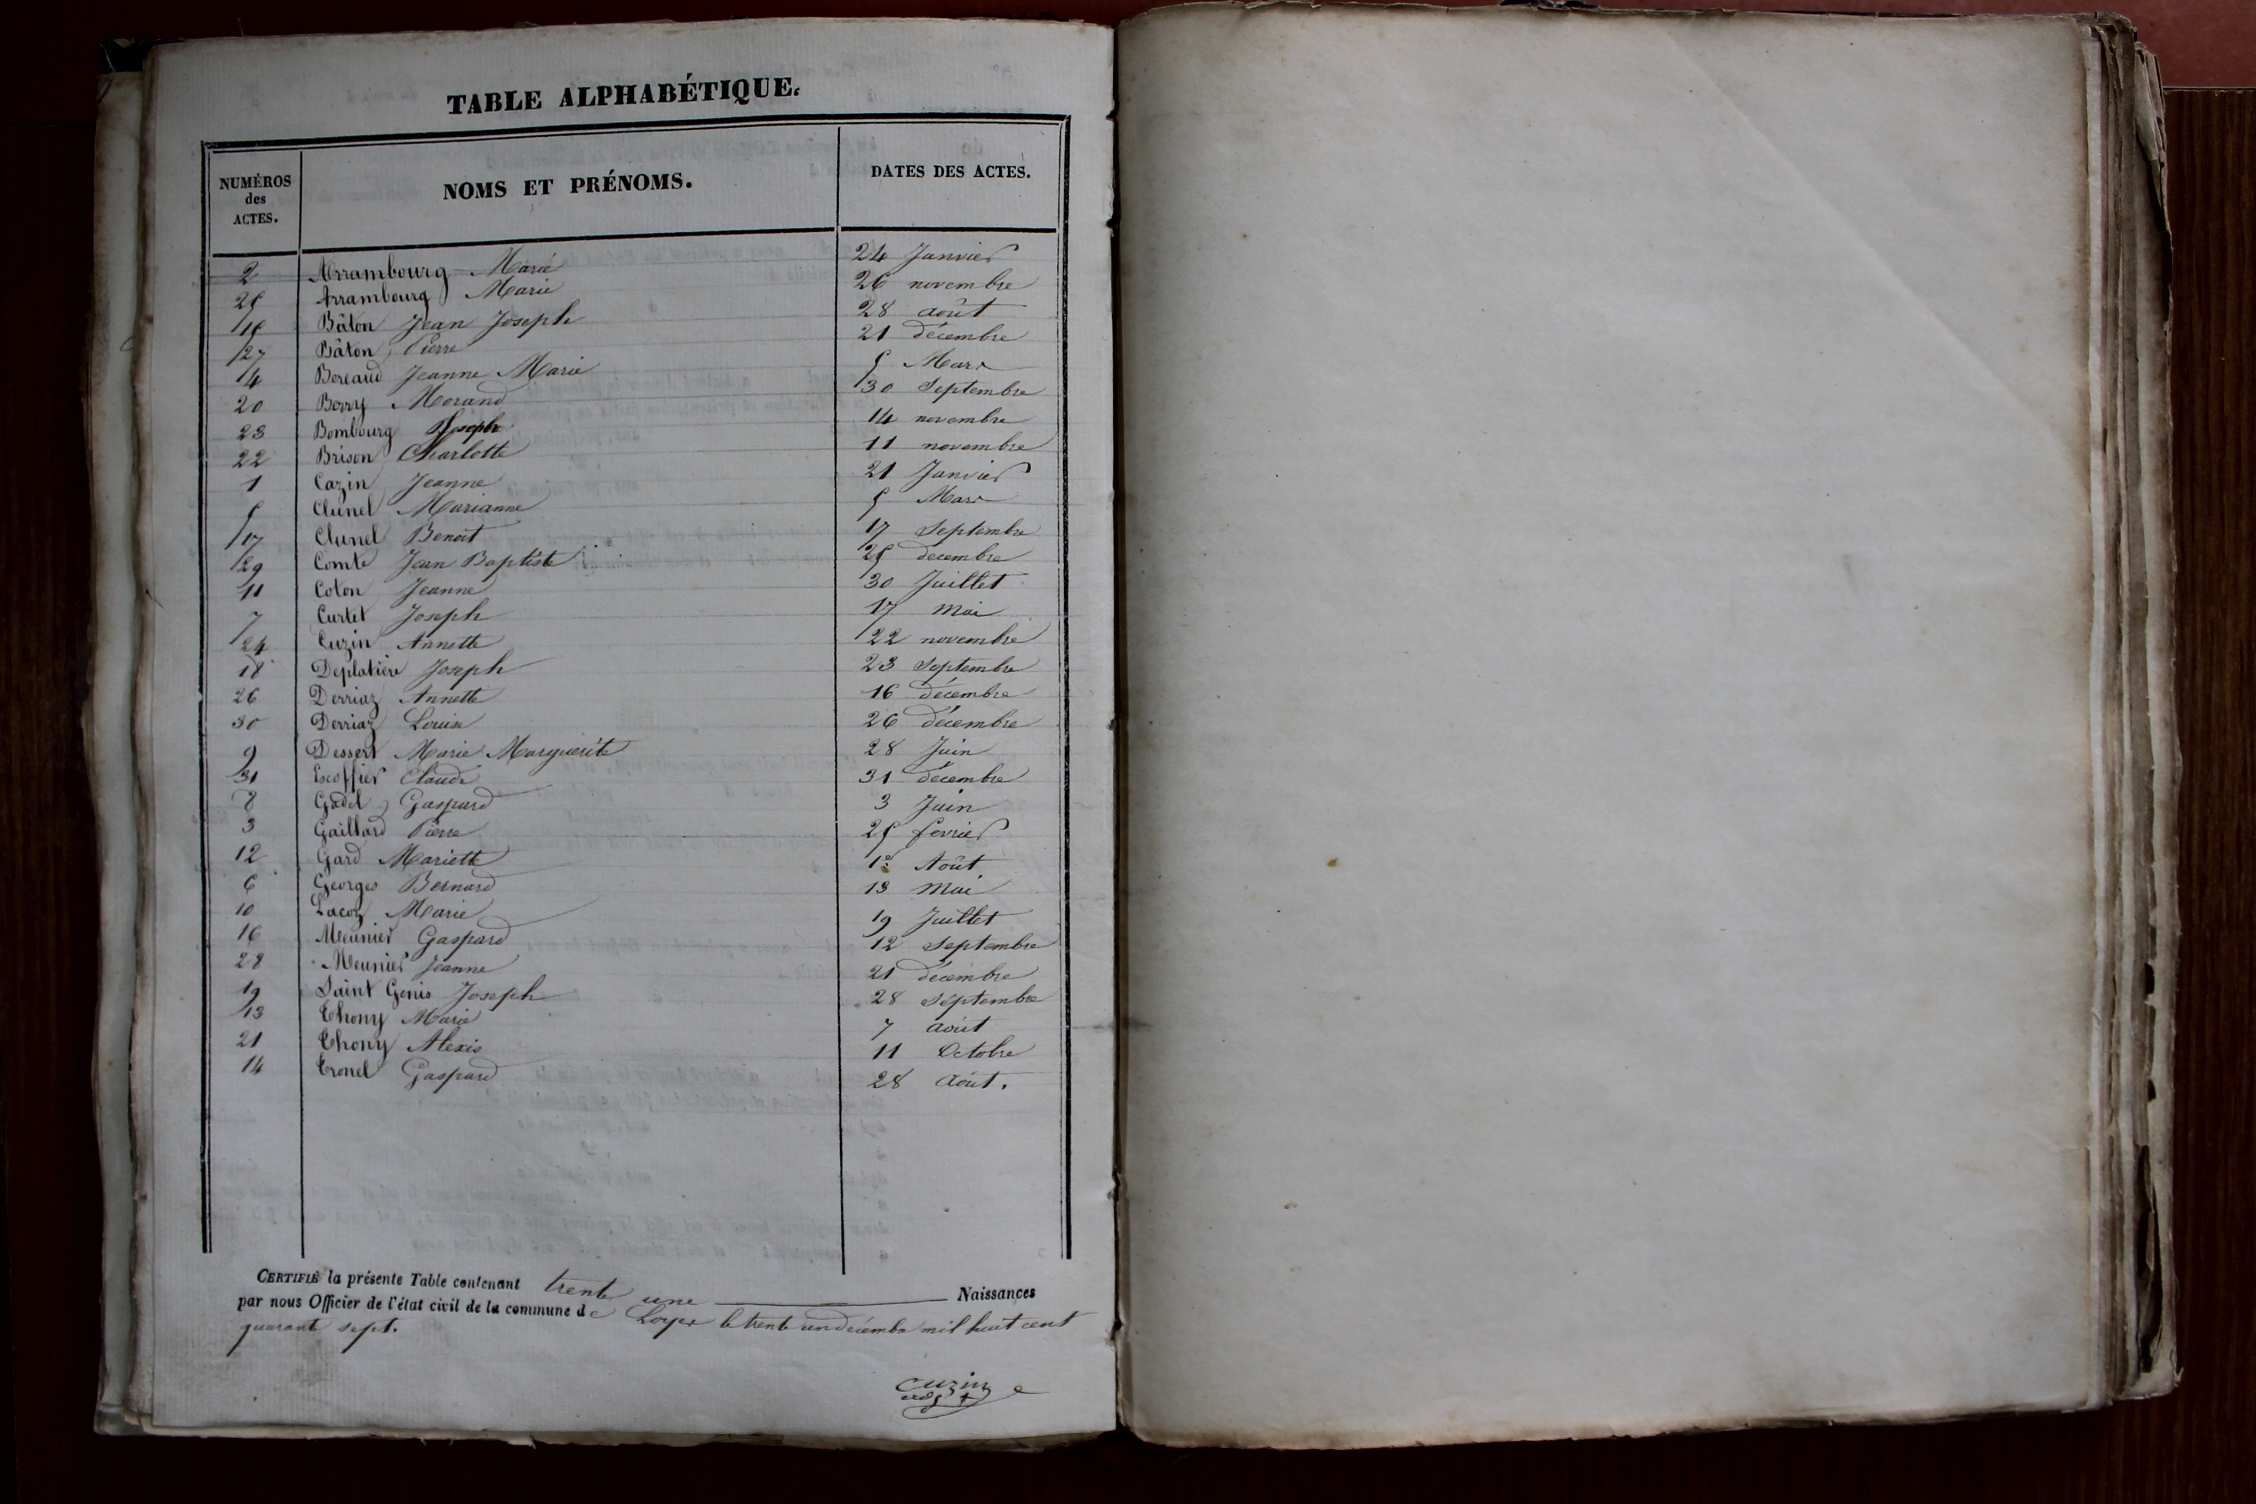 TABLE ALPHABÉTIQUE.
NUMÉROS des ACTES. NOMS ET PRÉNOMS. DATES DES ACTES.
2 Arrambourg Marie 24 Janvier
25 Arrambourg Marie 26 novembre
15 Bâton Jean Joseph 28 août
27 Bâton Pierre 21 décembre
4 Boreaud Jeanne Marie 5 Mars
20 Borry Morand 30 Septembre
23 Bombourg Joseph 14 novembre
22 Brison Charlotte 11 novembre
1 Cazin Jeanne 21 Janvier
5 Clunel Marianne 5 Mars
17 Clunel Benoit 17 Septembre
29 Comte Jean Baptiste 25 décembre
11 Coton Jeanne 30 Juillet
7 Curtet Joseph 17 Mai
24 Cuzin Annette 22 novembre
18 Deplatière Joseph 23 Septembre
26 Derriaz Annette 16 décembre
30 Derriaz Louise 26 décembre
9 Dessert Marie Marguerite 28 Juin
31 Escoffier Claude 31 décembre
8 Gadel Gaspard 3 Juin
3 Gaillard Pierre 25 fevrier
12 Gard Mariette 1er Août
6 Georges Bernard 13 Mai
10 Lacoz Marie 19 Juillet
16 Meunier Gaspard 12 Septembre
28 Meunier Jeanne 21 décembre
19 Saint Genis Joseph 28 Septembre
13 Thony Marie 7 août
21 Thony Alexis 11 Octobre
14 Tronel Gaspard 28 Août.
CERTIFIÉ la présente Table contenant trente une Naissances
par nous Officier de l'état civil de la commune de Loyes le trente un décembre mil huit cent
quarante sept.
Cuzin
adjt